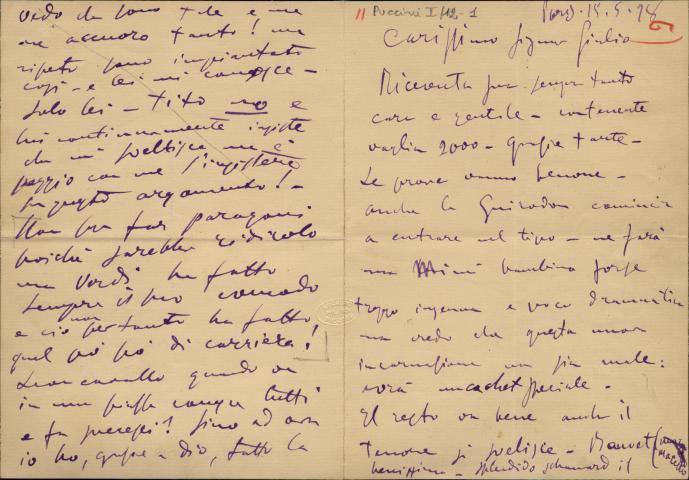 11 Puccini I/12-1
Parigi 15.5.98
6
Carissimo Signor Giulio
Ricevuta sua sempre tanto
cara e gentile - contenente
vaglia 2000 - Grazie tante -
Le prove vanno benone -
anche la Guiraudon comincia
a entrare nel tipo - ne farà
una Mimì bambina forse
troppo ingenua e poco drammatica
ma credo che questa nuova
incarnazione non sia male:
avrà un cachet speciale -
Il resto va bene anche il
Tenore si svelisce - Bouvet (
benissimo - splendido schaunard il
vedo che sono tale e me
ne accuoro tanto! ma
ripeto sono impiantato
così - e lei mi conosce -
Solo lei - Tito no e
lui continuamente insiste
che mi sveltisca ma è
peggio con me l'insistere
su questo argomento! -
Non ha far paragoni
poichè sarebbe ridicolo
ma Verdi ha fatto
sempre il suo comodo
e ciò non pertanto ha fatto
quel pò pò di carriera!
Leoncavallo quando va
in una piazza conosce tutti
e fa prezezi! Sino ad ora
io ho, grazie a Dio, fatto la